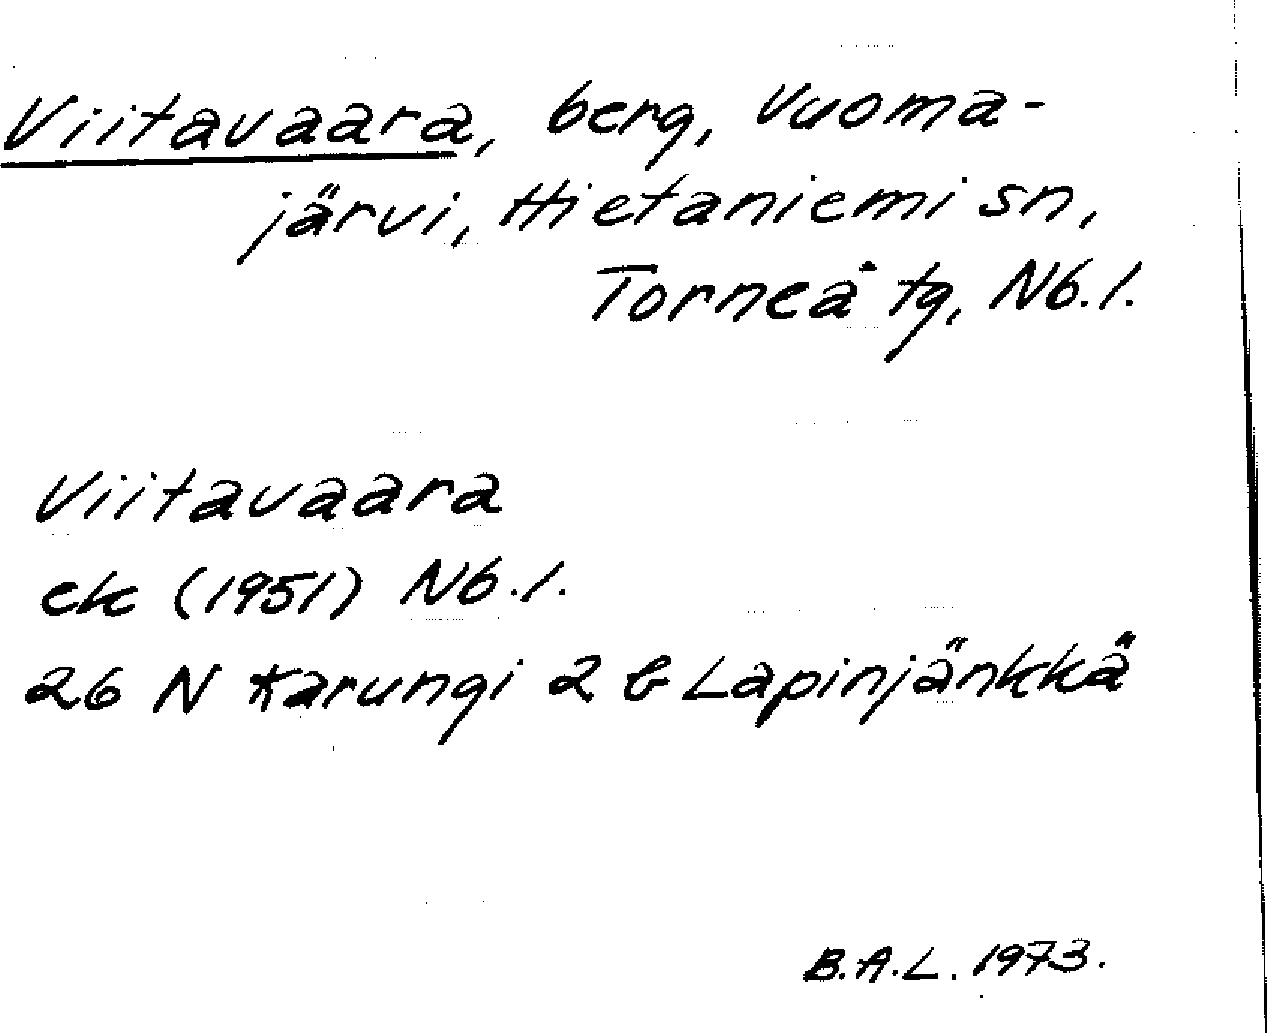 Viitavaara, berg, Vuoma-
järvi, Hietaniemi sn,
Torneå tg, Nb.l.
Viitavaara
ek (1951) Nb.l.
26 N Karungi 2 b Lapinjänkkä
B.A.L. 1973.